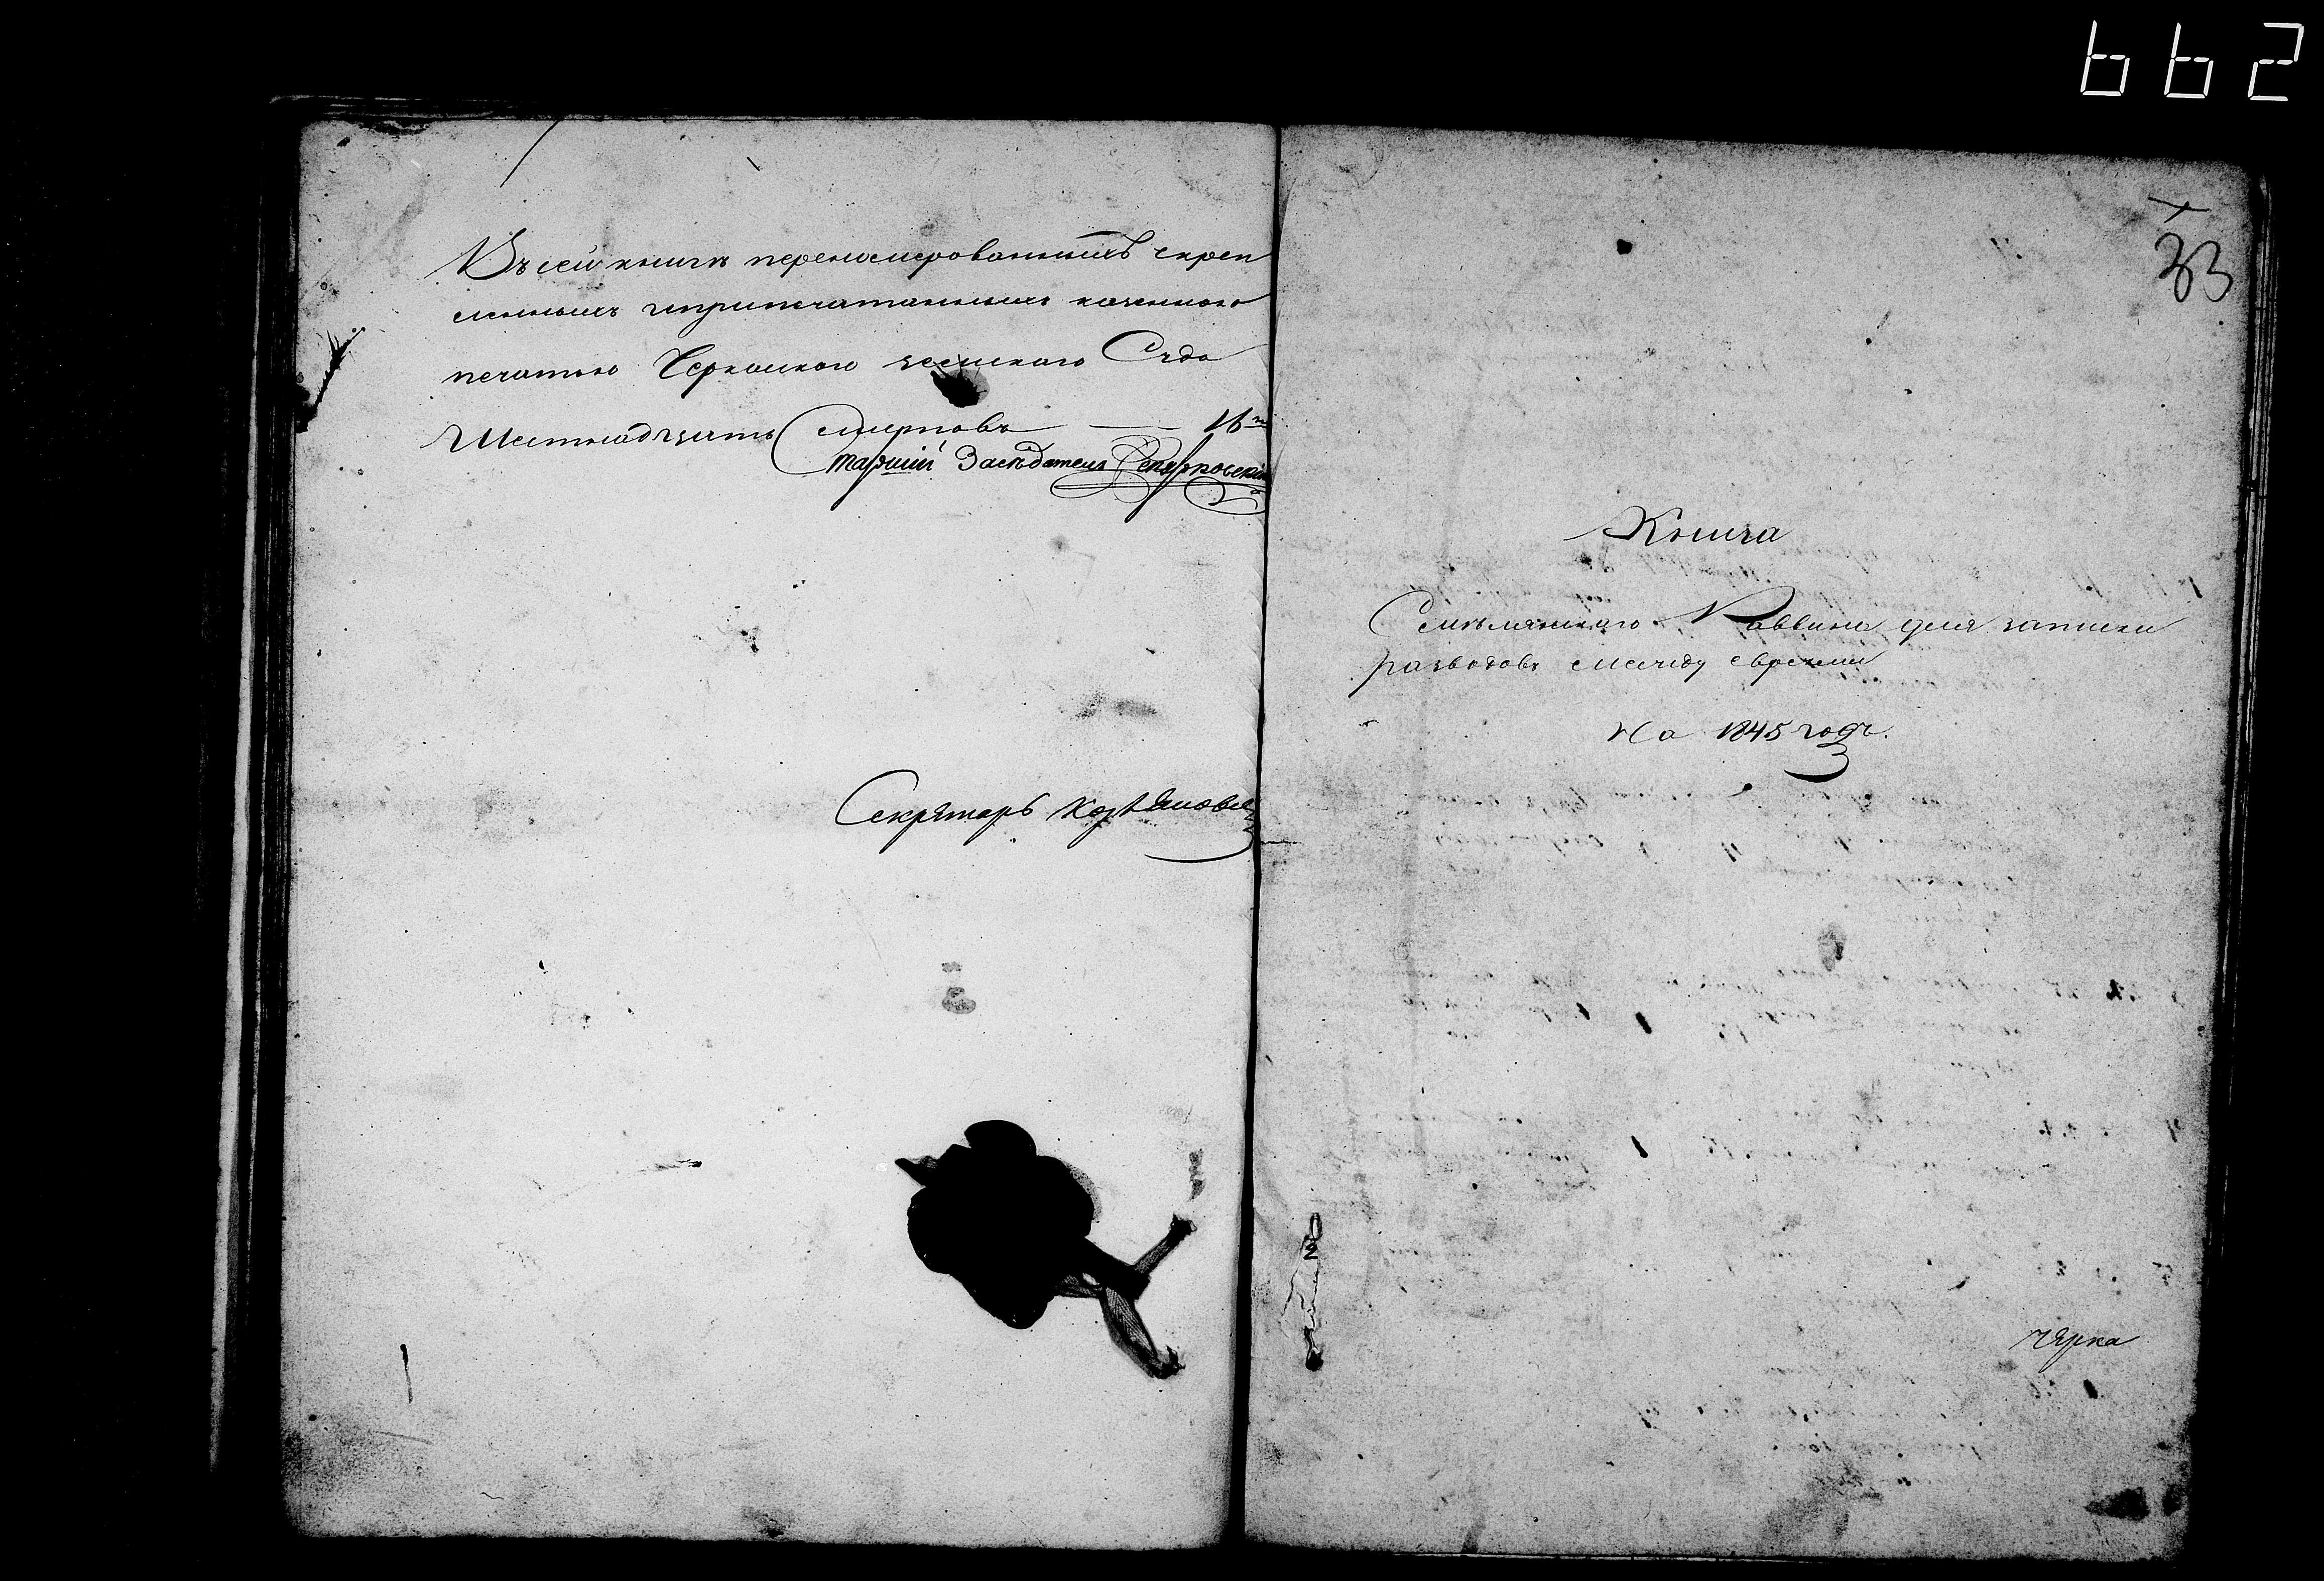 662
Въ сей книги перенумерованныхъ скреп
ленныхъ и припечатанныхъ казенною
печатью Черкаского земского Суда
Шестнадцать листовъ — 16 л
Старший Заседатель
Секретарь
33
Книга
Смелянского Раввина для записки
разводовъ между евреями
На 1845 годъ.
2